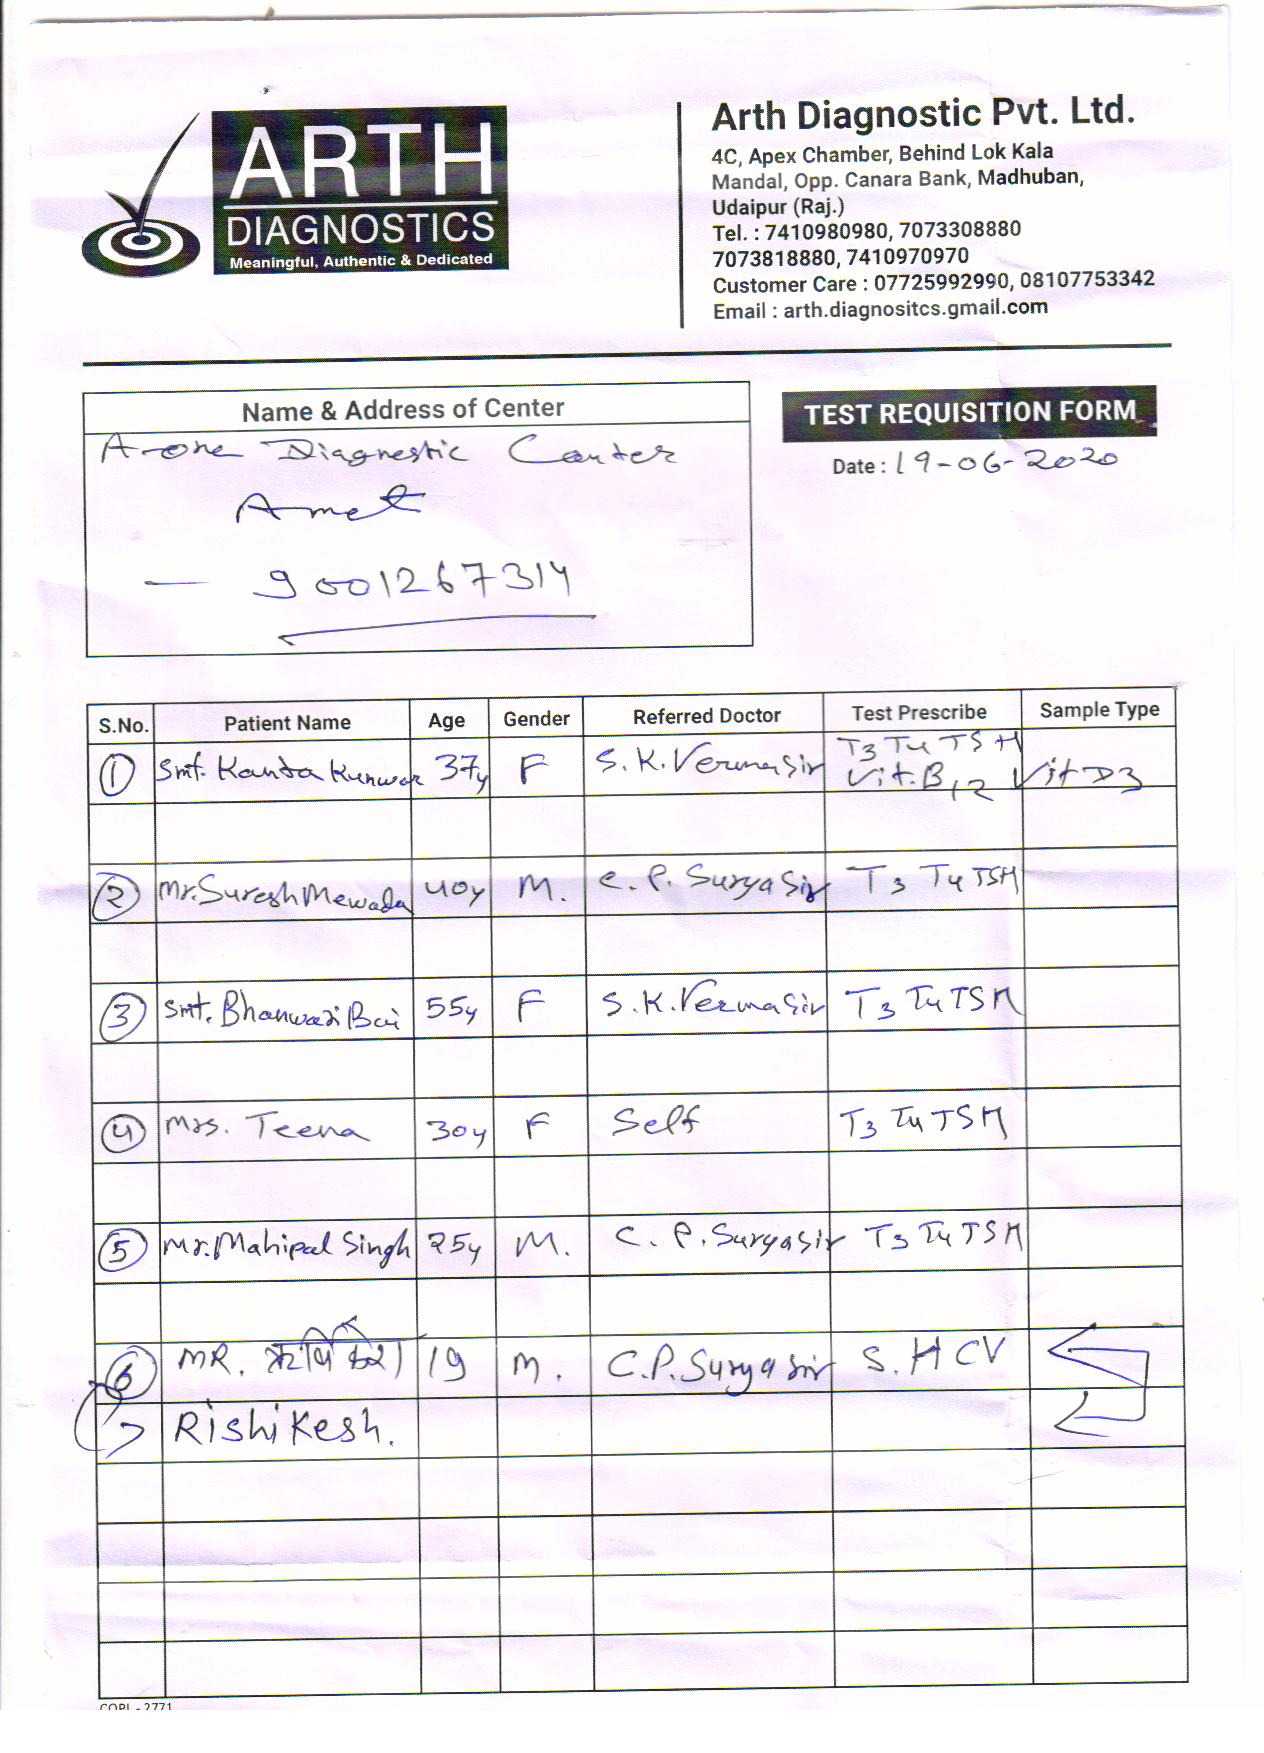 ARTH
DIAGNOSTICS
Meaningful, Authentic & Dedicated
Arth Diagnostic Pvt. Ltd.
4C, Apex Chamber, Behind Lok Kala
Mandal, Opp. Canara Bank, Madhuban,
Udaipur (Raj.)
Tel. : 7410980980, 7073308880
7073818880, 7410970970
Customer Care : 07725992990, 08107753342
Email : arth.diagnositcs.gmail.com
Name & Address of Center
A-one Diagnostic Center
Amet
— 9001267314
TEST REQUISITION FORM
Date : 19-06-2020
S.No. Patient Name Age Gender Referred Doctor Test Prescribe Sample Type
1 Smt. Kanta Kunwar 37y F S.K. Verma Sir T3 T4 TSH
Vit. B12 Vit D3
2 Mr. Suresh Mewada 40y M. C.P. Surya Sir T3 T4 TSH
3 Smt. Bhanwari Bai 55y F S.K. Verma Sir T3 T4 TSH
4 Mrs. Teena 30y F Self T3 T4 TSH
5 Mr. Mahipal Singh 25y M. C.P. Surya Sir T3 T4 TSH
6 MR. 19 M. C.P. Surya Sir S. HCV
Rishikesh.
COPL - 2771